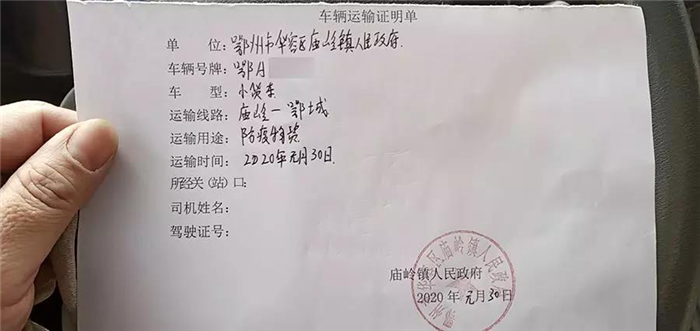 车辆运输证明单
单 位：鄂州市华容区庙岭镇人民政府
车辆号牌：鄂A
车 型：小货车
运输线路：庙岭—鄂城
运输用途：防疫物资
运输时间：2020年元月30日
所经关（站）口：
司机姓名：
驾驶证号：
鄂州市华容区庙岭镇人民政府
庙岭镇人民政府
2020年元月30日